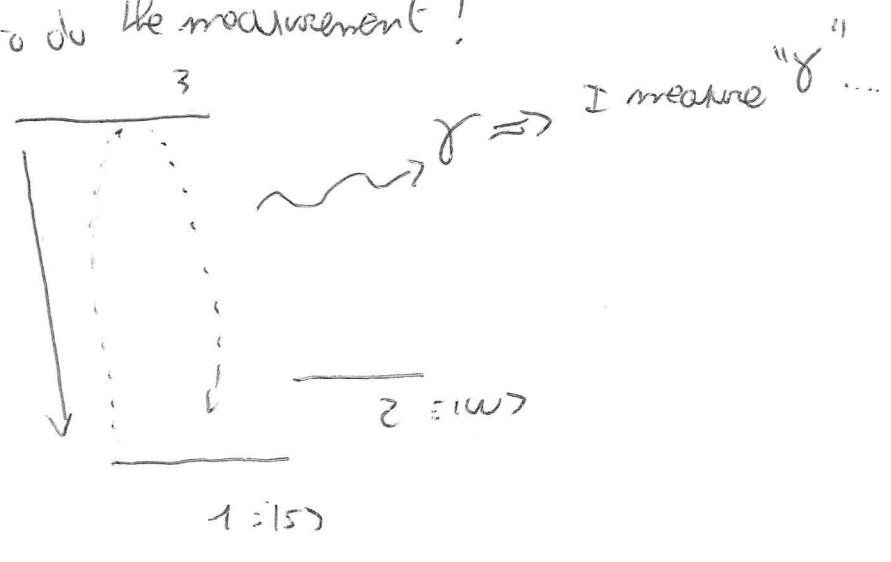 to do the measurement!
3
γ ⇒ I measure "γ" ....
2 : |w>
1 : |s>